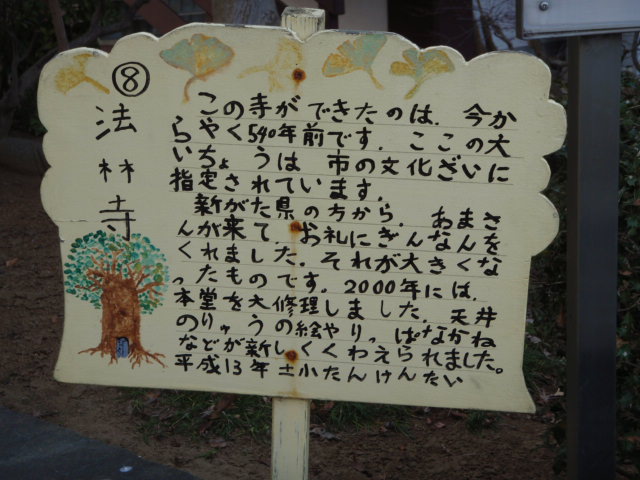 ⑧
法林寺
この寺ができたのは.今か
らやく540年前です.ここの大
いちょうは 市の文化ざいに
指定されています.
新がた県の方から.あまさ
んが来て.お礼にぎんなんを
くれました.それが大きくな
ったものです.2000年には.
本堂を大修理しました.天井
のりゅうの絵やりっぱなかね
などが新しくくわえられました。
平成13年土小たんけんたい